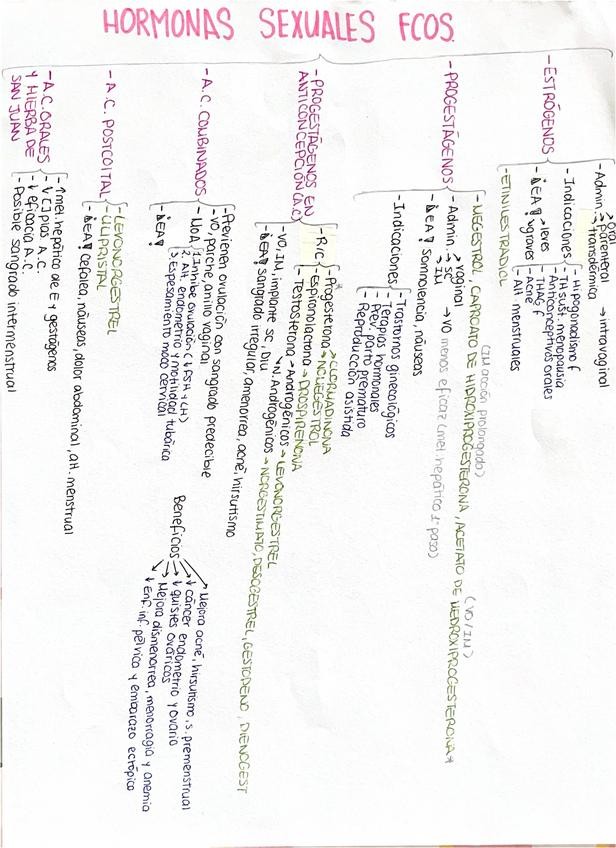 HORMONAS SEXUALES FCOS.
- ESTRÓGENOS
- Admin. → oral
→ parenteral → intravaginal
→ transdérmica
- Indicaciones. - Hipogonadismo f
- TH sust. menopausia
- Anticonceptivos orales
- THAG f
- Acné
- Alt. menstruales
- ¡EA! → leves
→ graves
- ETINILESTRADIOL
- PROGESTÁGENOS
(IM acción prolongada) (VO/IM)
- MEGESTROL, CAPROATO DE HIDROXIPROGESTERONA, ACETATO DE MEDROXIPROGESTERONA*
- Admin. → vaginal → VO menos eficaz (met. hepático 1er paso)
→ SC
→ IM
- ¡EA! Somnolencia, náuseas
- Indicaciones. - Trastornos ginecológicos
- Terapias hormonales
- Prev. parto prematuro
- Reproducción asistida
- PROGESTÁGENOS EN
ANTICONCEPCIÓN (A.C)
- R/C - Progesterona → CLORMADINONA
→ NOMEGESTROL
- Espironolactona → DROSPIRENONA
- Testosterona → Androgénicos → LEVONORGESTREL
→ N. Androgénicos → NORGESTIMATO, DESOGESTREL, GESTODENO, DIENOGEST
- VO, IM, implante SC, DIU
- ¡EA! sangrado irregular, amenorrea, acné, hirsutismo
- A.C. COMBINADOS
- Previenen ovulación con sangrado predecible
- VO, parche, anillo vaginal
- MoA. 1. Inhibe ovulación (↓ FSH y LH)
2. Alt. endometrio y motilidad tubárica
3. Espesamiento moco cervical
- ¡EA!
Beneficios → Mejora acné, hirsutismo, s. premenstrual
→ ↓ cáncer endometrio y ovario
→ ↓ quistes ováricos
→ Mejora dismenorrea, menorragia y anemia
→ ↓ Enf. inf. pélvica y embarazo ectópico
- A.C. POSTCOITAL
- LEVONORGESTREL
- ULIPRISTAL
- ¡EA! Cefalea, náuseas, dolor abdominal, alt. menstrual
- A.C. ORALES
Y HIERBA DE
SAN JUAN
- ↑ met. hepático de E y gestágenos
- ↓ Cplas A.C.
- ↓ eficacia A.C.
- Possible sangrado intermenstrual